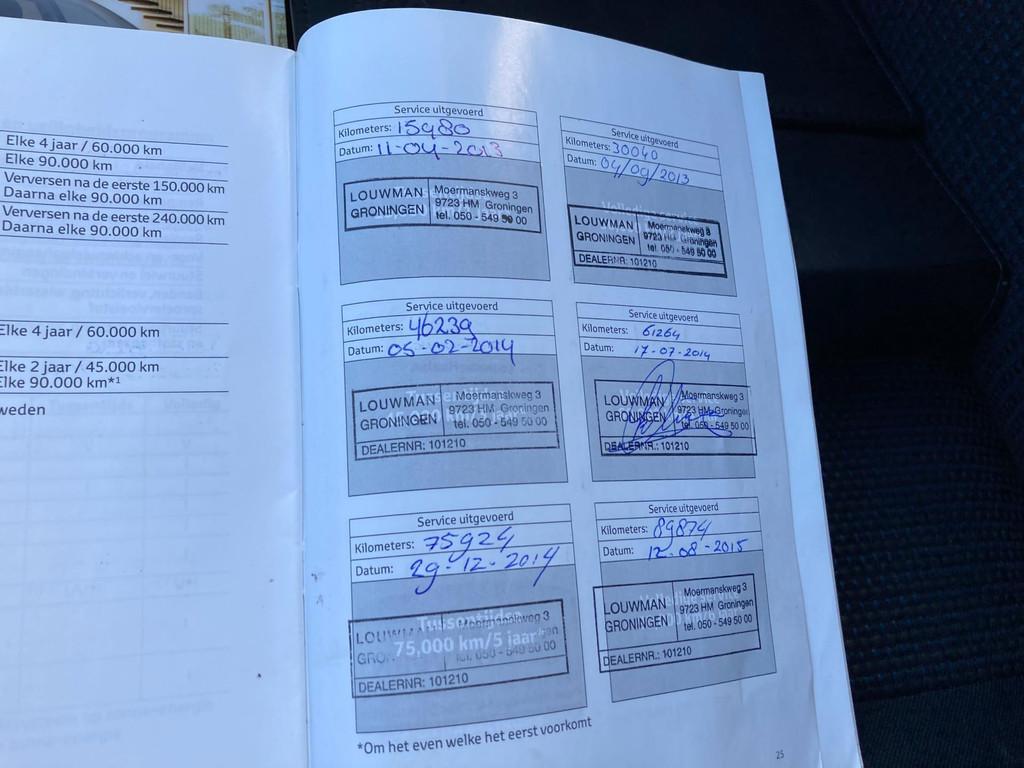 Elke 4 jaar / 60.000 km
Elke 90.000 km
Verversen na de eerste 150.000 km
Daarna elke 90.000 km
Verversen na de eerste 240.000 km
Daarna elke 90.000 km
Elke 4 jaar / 60.000 km
Elke 2 jaar / 45.000 km
Elke 90.000 km*1
weden
Service uitgevoerd
Kilometers: 15980
Datum: 11-04-2013
LOUWMAN GRONINGEN
Moermanskweg 3
9723 HM Groningen
tel. 050 - 549 50 00
Service uitgevoerd
Kilometers: 30040
Datum: 04/09/2013
LOUWMAN GRONINGEN
Moermanskweg 3
9723 HM Groningen
tel. 050 - 549 50 00
DEALERNR: 101210
Service uitgevoerd
Kilometers: 46239
Datum: 05-02-2014
LOUWMAN GRONINGEN
Moermanskweg 3
9723 HM Groningen
tel. 050 - 549 50 00
DEALERNR: 101210
Service uitgevoerd
Kilometers: 61264
Datum: 17-07-2014
LOUWMAN GRONINGEN
Moermanskweg 3
9723 HM Groningen
tel. 050 - 549 50 00
DEALERNR.: 101210
Service uitgevoerd
Kilometers: 75924
Datum: 29-12-2014
Tussentijdse
75.000 km/5 jaar*
LOUWMAN GRONINGEN
Moermanskweg 3
tel. 050 - 549 50 00
DEALERNR: 101210
Service uitgevoerd
Kilometers: 89874
Datum: 12-08-2015
Volledige service
LOUWMAN GRONINGEN
Moermanskweg 3
9723 HM Groningen
tel. 050 - 549 50 00
DEALERNR.: 101210
*Om het even welke het eerst voorkomt
25